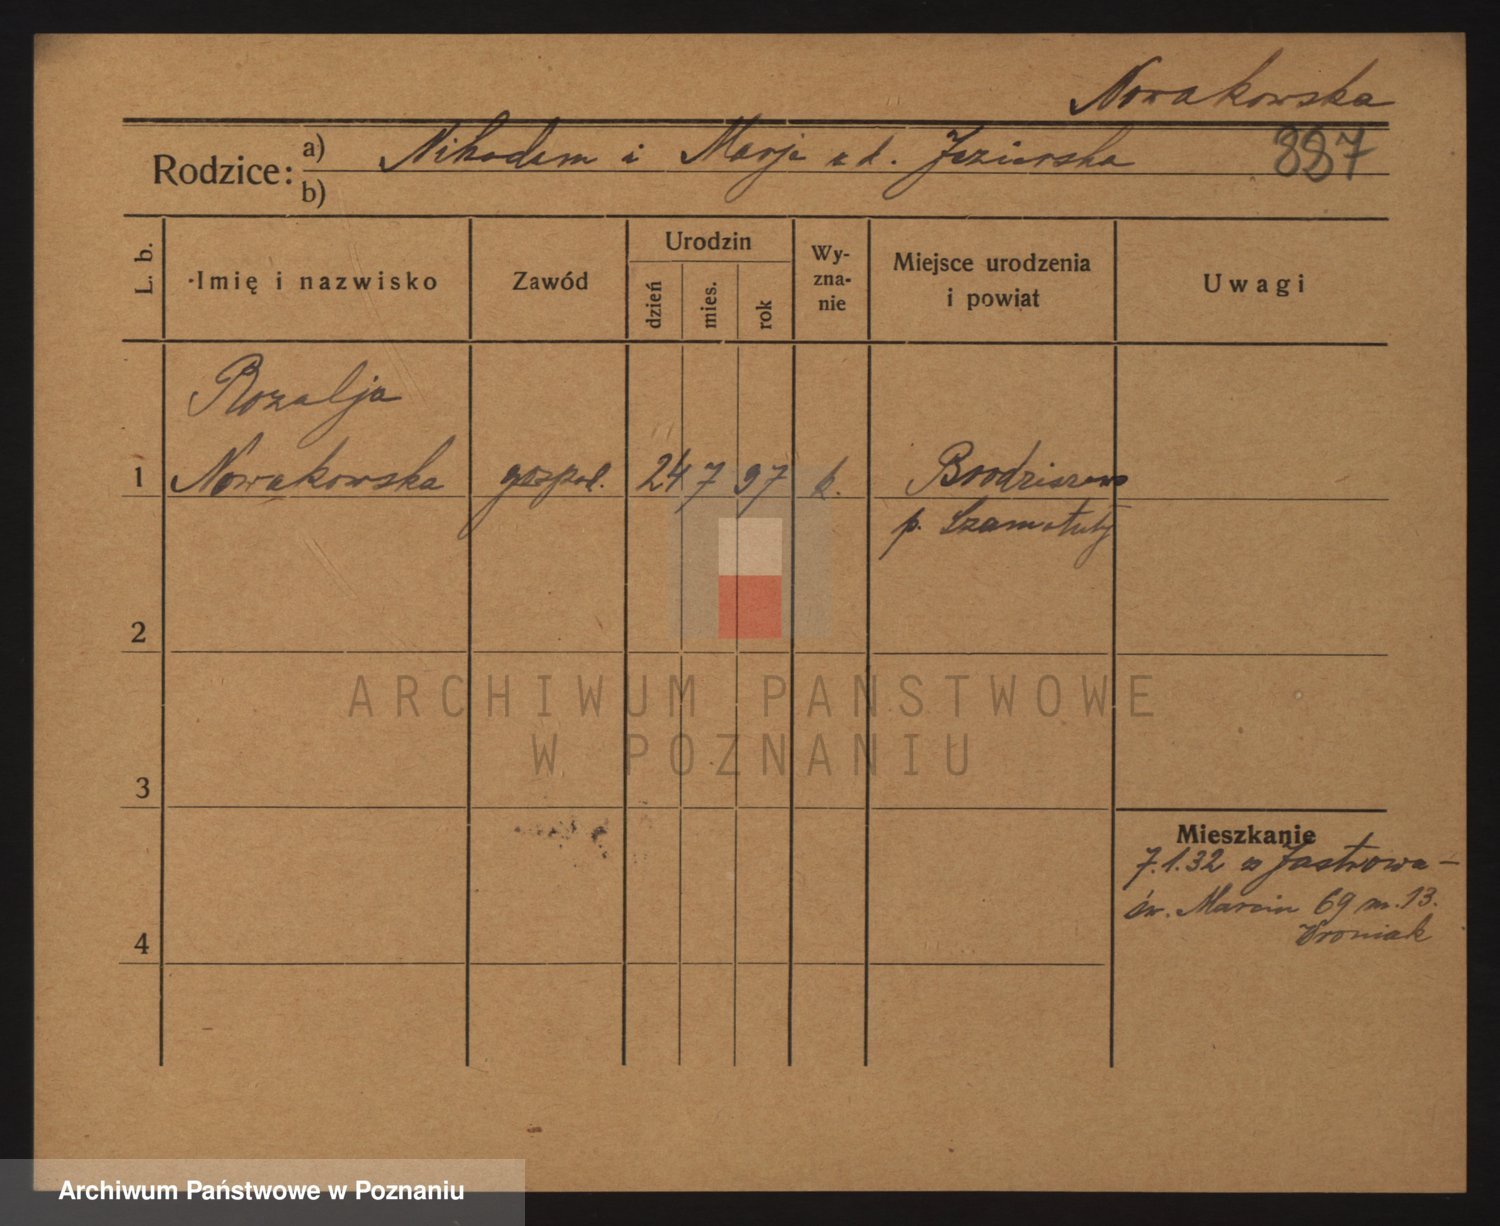 Nowakowska
887
Rodzice: a) Nikodem i Marja z d. Jezierska
b)
L. b.
Imię i nazwisko
Zawód
Urodzin
dzień
mies.
rok
Wy-
zna-
nie
Miejsce urodzenia
i powiat
Uwagi
Rozalja
1 Nowakowska gospod. 24 7 97 k. Brodziszewo
p. Szamotuły
2
ARCHIWUM PAŃSTWOWE
W POZNANIU
3
Mieszkanie
7.1.32 z Jastrowa –
św. Marcin 69 m. 13.
Woroniak
4
Archiwum Państwowe w Poznaniu